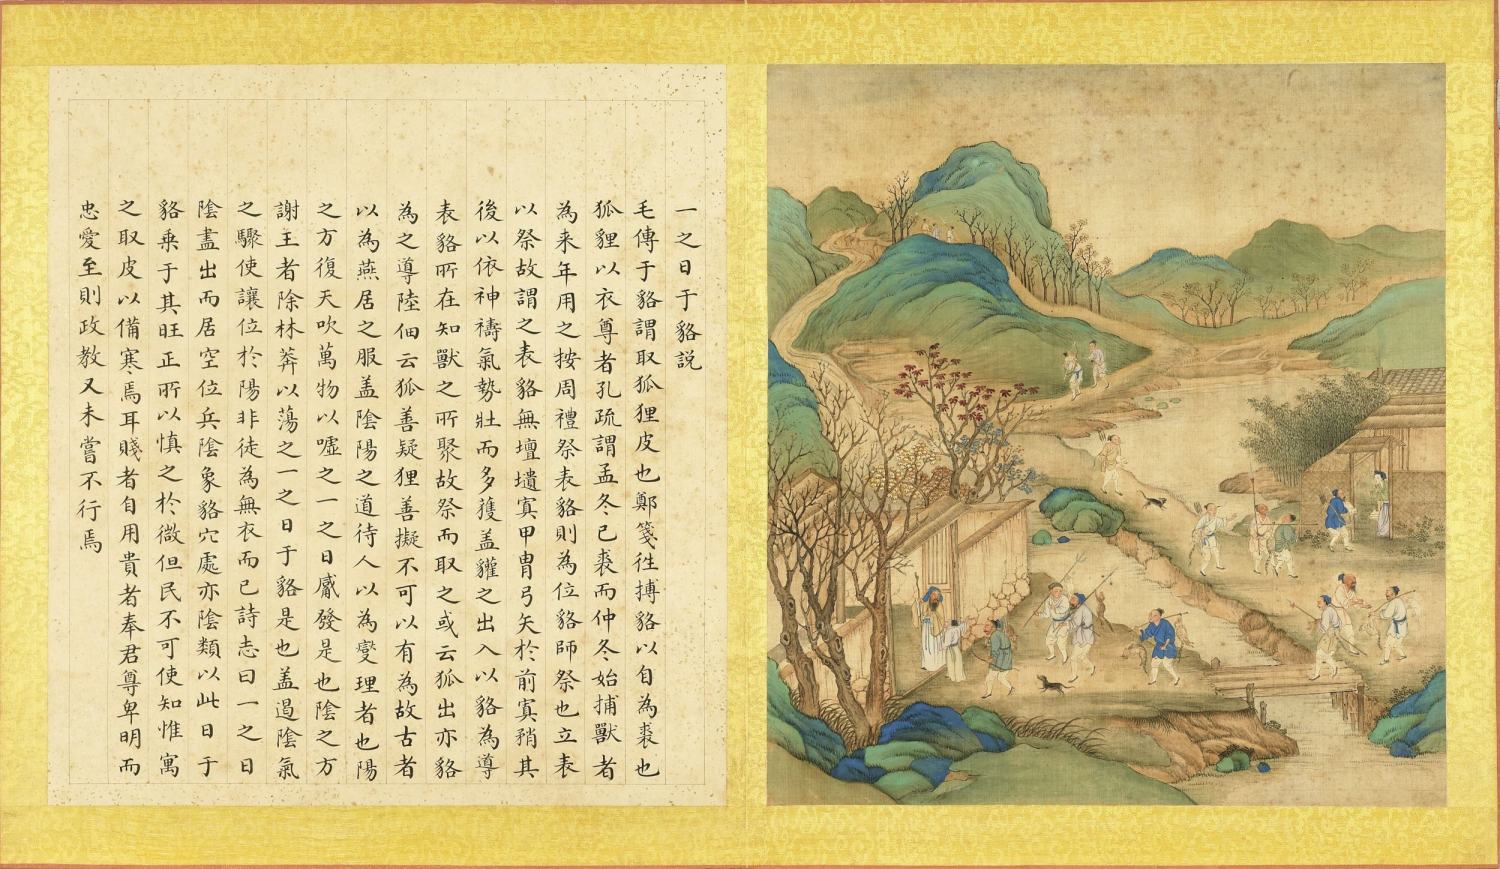 一之日于貉説
毛傳于貉謂取狐狸皮也鄭箋徃搏貉以自為裘也
狐貍以衣尊者孔疏謂孟冬已裘而仲冬始捕獸者
為来年用之按周禮祭表貉則為位貉師祭也立表
以祭故謂之表貉無壇壝寘甲冑弓矢於前寘矟其
後以依神禱氣勢壯而多獲盖貛之出入以貉為導
表貉所在知獸之所聚故祭而取之或云狐出亦貉
為之導陸佃云狐善疑狸善擬不可以有為故古者
以為燕居之服盖陰陽之道待人以為燮理者也陽
之方復天吹萬物以噓之一之日觱發是也陰之方
謝王者除林莽以蕩之一之日于貉是也盖過陰氣
之驟使讓位於陽非徒為無衣而已詩志曰一之日
陰盡出而居空位兵陰象貉穴處亦陰類以此日于
貉乗于其旺正所以慎之於微但民不可使知惟寓
之取皮以備寒焉耳賤者自用貴者奉君尊卑明而
忠愛至則政教又未嘗不行焉